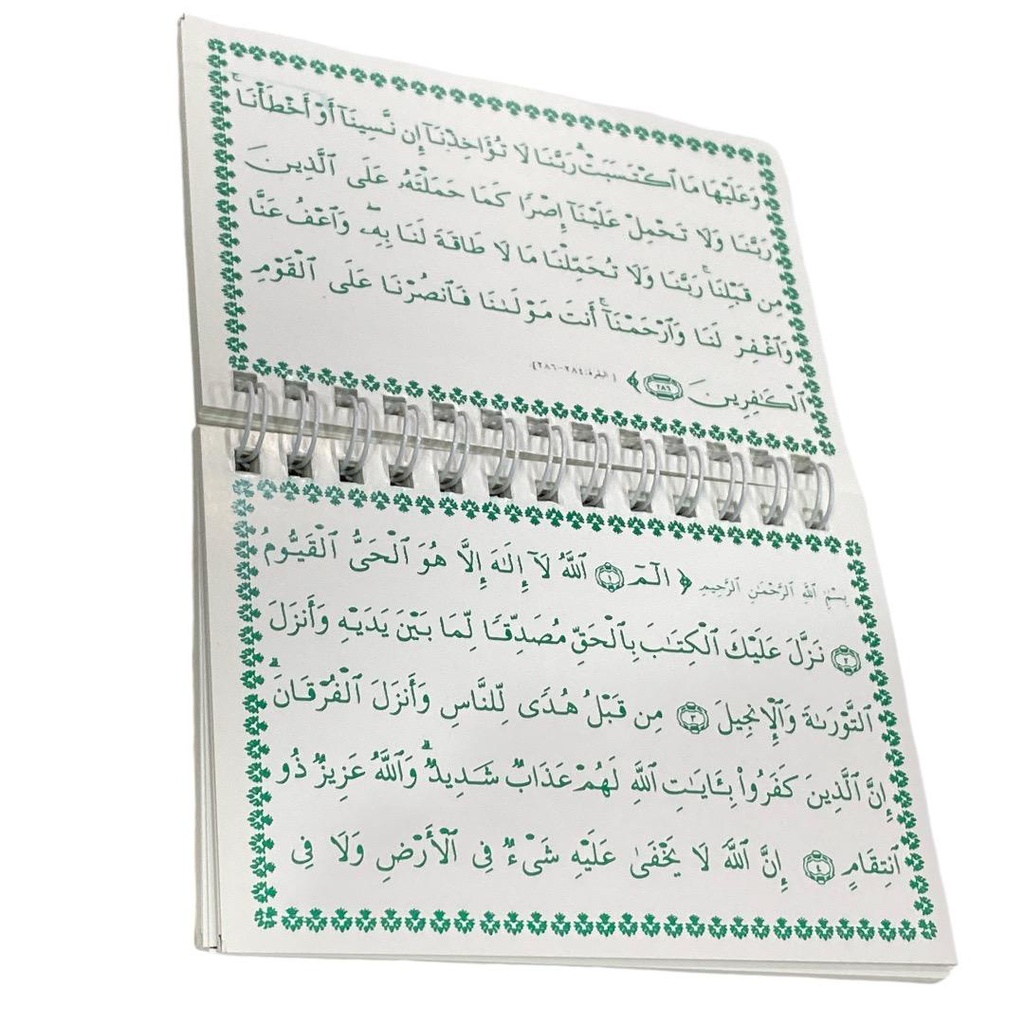 وَعَلَيْهَا مَا ٱكْتَسَبَتْ ۗ رَبَّنَا لَا تُؤَاخِذْنَآ إِن نَّسِينَآ أَوْ أَخْطَأْنَا ۚ
رَبَّنَا وَلَا تَحْمِلْ عَلَيْنَآ إِصْرًا كَمَا حَمَلْتَهُۥ عَلَى ٱلَّذِينَ
مِن قَبْلِنَا ۚ رَبَّنَا وَلَا تُحَمِّلْنَا مَا لَا طَاقَةَ لَنَا بِهِۦ ۖ وَٱعْفُ عَنَّا
وَٱغْفِرْ لَنَا وَٱرْحَمْنَآ ۚ أَنتَ مَوْلَىٰنَا فَٱنصُرْنَا عَلَى ٱلْقَوْمِ
ٱلْكَٰفِرِينَ ﴿٢٨٦﴾ ﴾ [البقرة: ٢٨٤-٢٨٦].
بِسْمِ ٱللَّهِ ٱلرَّحْمَٰنِ ٱلرَّحِيمِ ﴿ الٓمٓ ﴿١﴾ ٱللَّهُ لَآ إِلَٰهَ إِلَّا هُوَ ٱلْحَىُّ ٱلْقَيُّومُ
﴿٢﴾ نَزَّلَ عَلَيْكَ ٱلْكِتَٰبَ بِٱلْحَقِّ مُصَدِّقًا لِّمَا بَيْنَ يَدَيْهِ وَأَنزَلَ
ٱلتَّوْرَىٰةَ وَٱلْإِنجِيلَ ﴿٣﴾ مِن قَبْلُ هُدًى لِّلنَّاسِ وَأَنزَلَ ٱلْفُرْقَانَ ۗ
إِنَّ ٱلَّذِينَ كَفَرُوا۟ بِـَٔايَٰتِ ٱللَّهِ لَهُمْ عَذَابٌ شَدِيدٌ ۗ وَٱللَّهُ عَزِيزٌ ذُو
ٱنتِقَامٍ ﴿٤﴾ إِنَّ ٱللَّهَ لَا يَخْفَىٰ عَلَيْهِ شَىْءٌ فِى ٱلْأَرْضِ وَلَا فِى